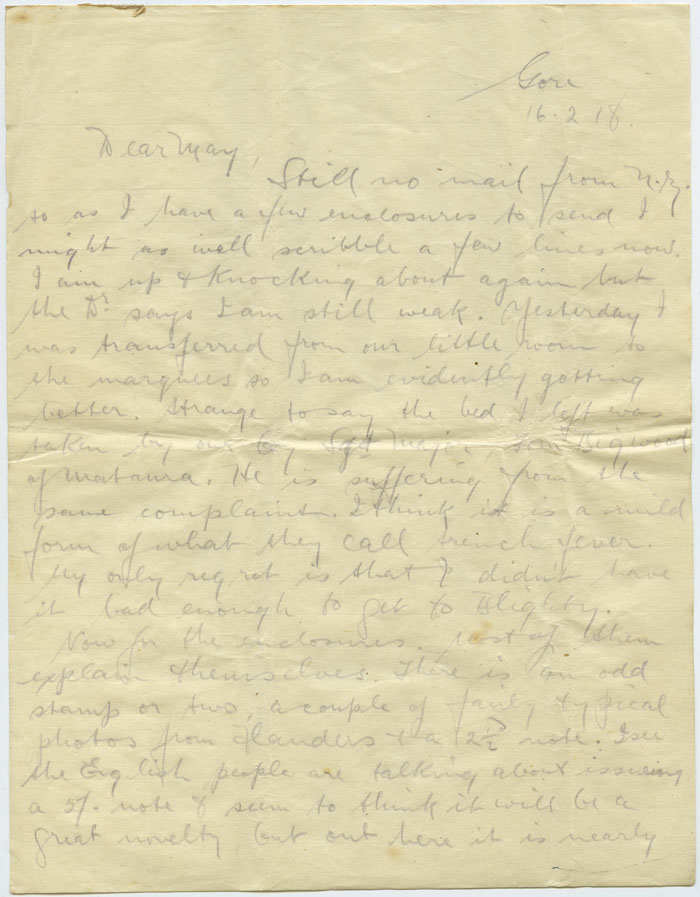 Gore
16.2.18.
Dear May,
Still no mail from N.Z.
so as I have a few enclosures to send I
might as well scribble a few lines now.
I am up & knocking about again but
the Dr says I am still weak. Yesterday I
was transferred from our little room to
the marquees so I am evidently getting
better. Strange to say the bed I left was
taken by our Coy Sgt Major, Bigwood
of Mataura. He is suffering from the
same complaint. I think it is a mild
form of what they call trench fever.
My only regret is that I didn't have
it bad enough to get to Blighty.
Now for the enclosures. Most of them
explain themselves. There is an odd
stamp or two, a couple of fairly typical
photos from Flanders & a note. I see
the English people are talking about issuing
a 5/- note & seem to think it will be a
great novelty but out here it is nearly